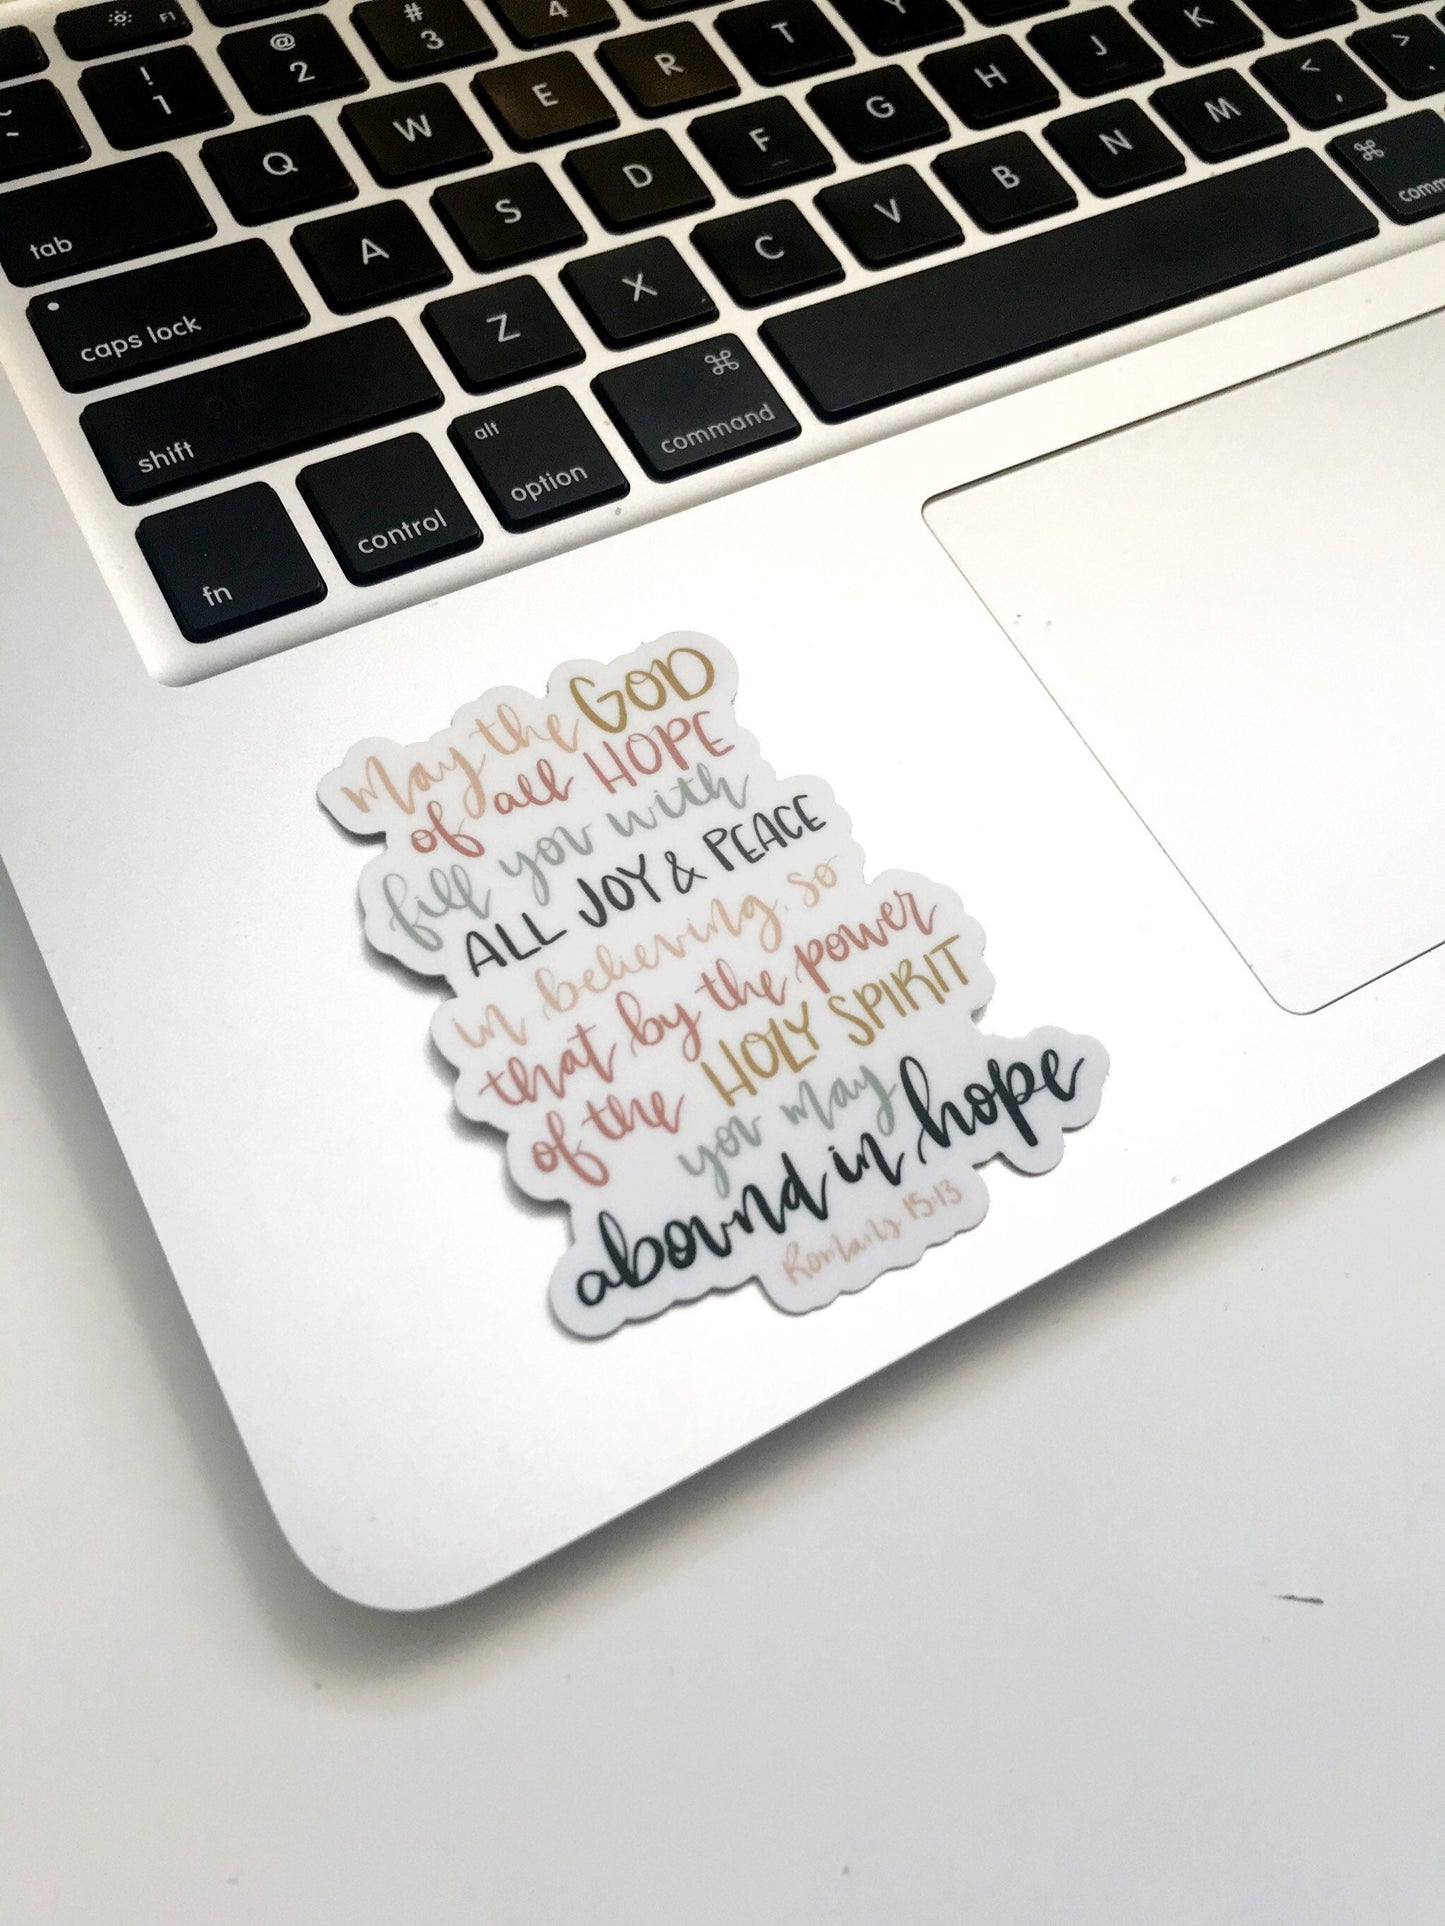 F1
! 1
@ 2
# 3
4
~
tab
Q
W
E
R
T
Y
caps lock
A
S
D
F
G
H
J
K
shift
Z
X
C
V
B
N
M
< ,
> .
fn
control
alt
option
⌘
command
⌘
may the GOD
of all HOPE
fill you with
ALL JOY & PEACE
in believing, so
that by the power
of the HOLY SPIRIT
you may
abound in hope
Romans 15:13